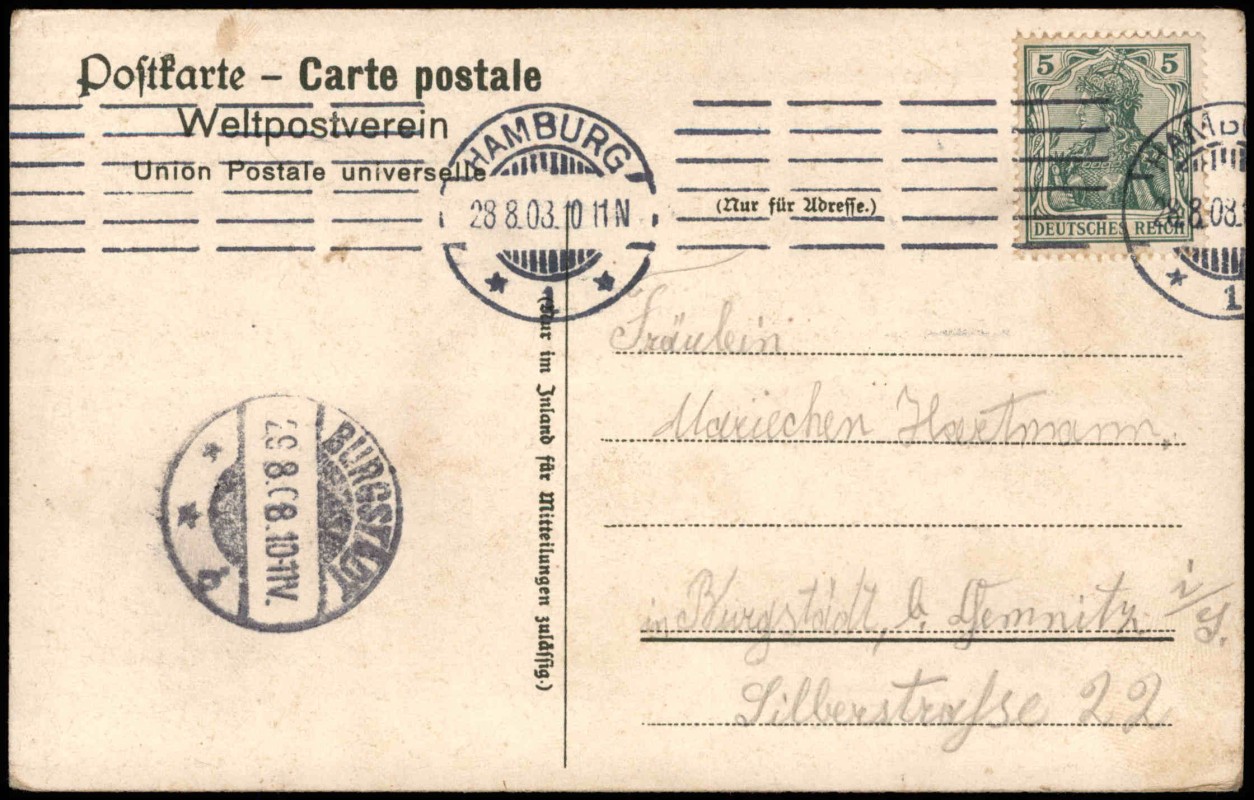 Postkarte – Carte postale
Weltpostverein
Union Postale universelle
HAMBURG
28.8.08.10-11N
* 1 *
5 5
DEUTSCHES REICH
HAMBU
28.8.08.1
* 1
(Nur für Adresse.)
(Nur im Inland für Mitteilungen zulässig.)
Fräulein
Mariechen Hartmann,
in Burgstädt, b. Chemnitz i/S.
Silberstrasse 22
BURGSTÄDT
29.8.08.10-11V.
* * b